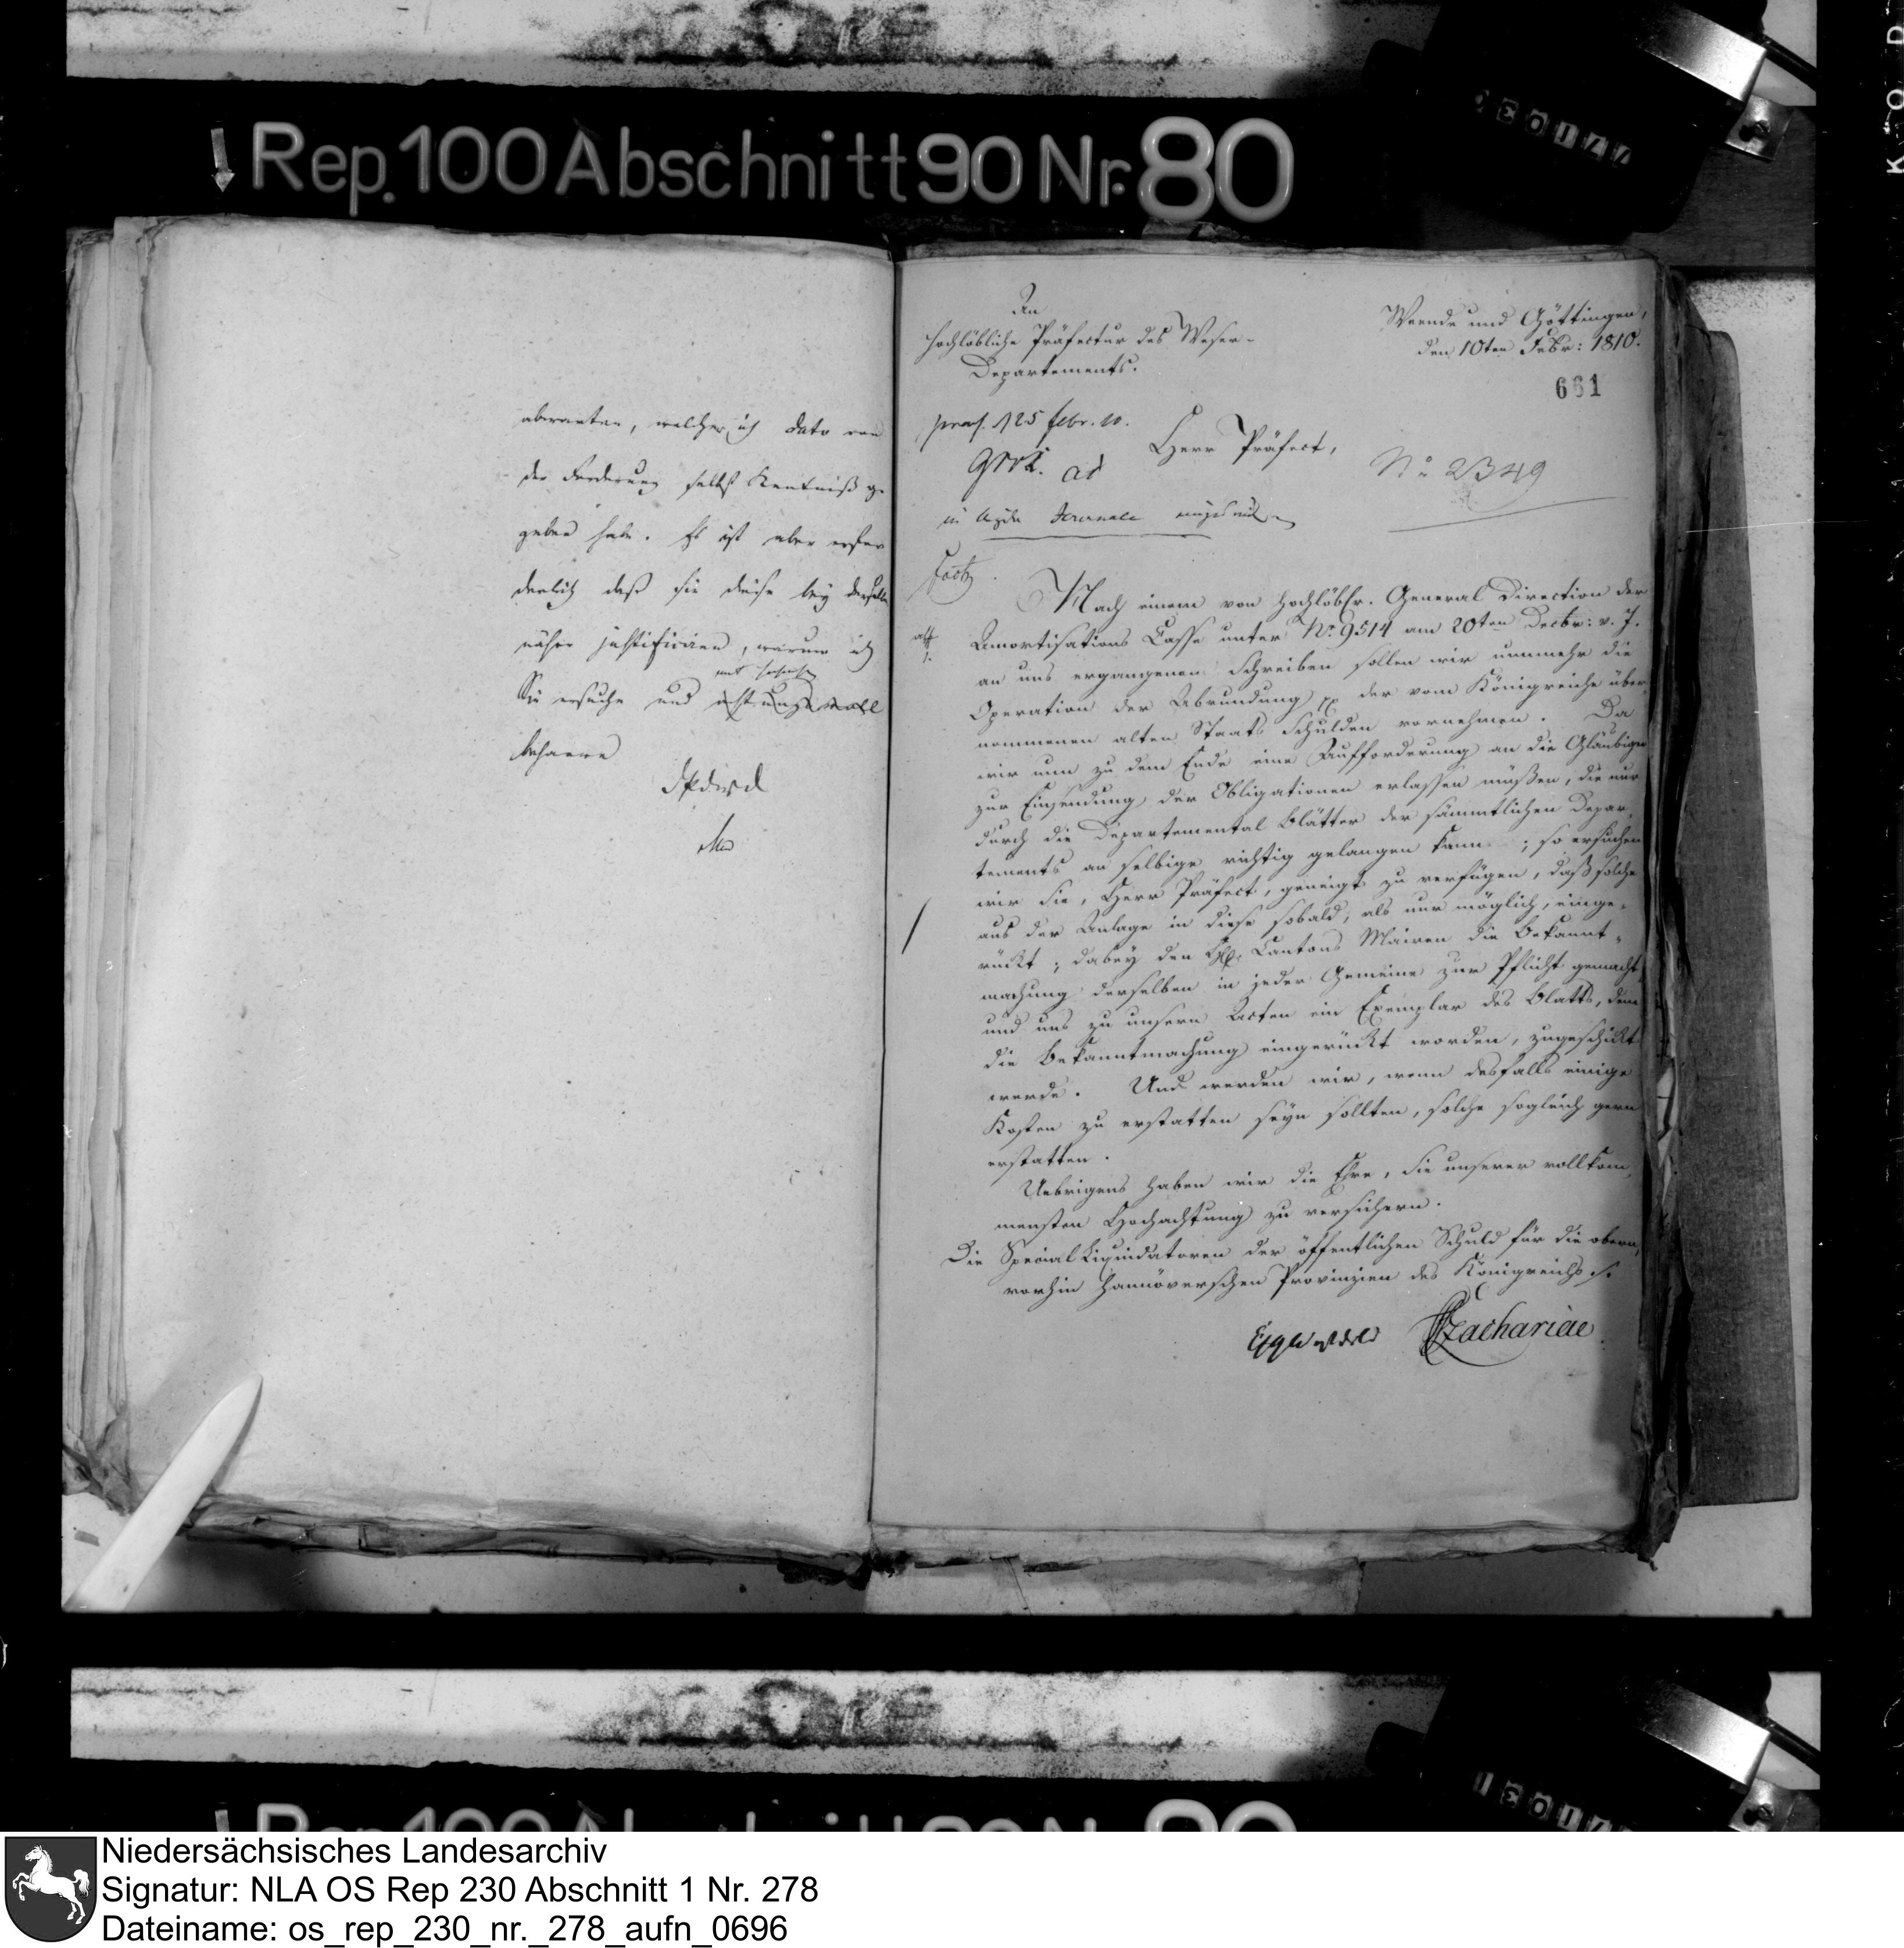 Rep. 100 Abschnitt 90 Nr. 80
welcher ich dato von
der Forderung selbst Kentniß ge
geben habe. Es ist aber erfor
derlich daß sie diese bey derselben
näher justificiren, warum ich
Sie ersuche und
beharre
An
Hochlöbliche Präfectur des Weser-
Departements.
Weende und Göttingen,
den 10ten Febr: 1810.
661
praes. 25 febr. 10.
Herr Präfect,
No 2349
Nach einem von Hochlöblr. General Direction der
Amortisations Casse unter No. 9514 am 20ten Decbr: v. J.
an uns ergangenen Schreiben sollen wir nunmehr die
Operation der Abrundung der vom Königreiche über
nommenen alten Staats Schulden vornehmen. Da
wir nun zu dem Ende eine Aufforderung an die Gläubiger
zur Einsendung der Obligationen erlassen müßen, die nur
durch die Departemental Blätter der sämmtlichen Depar
tements an selbige richtig gelangen kann; so ersuchen
wir Sie, Herr Präfect, geneigt zu verfügen, daß solche
aus der Anlage in diese sobald, als nur möglich, einge-
rückt; dabey den Cantons Mairen die Bekannt-
machung derselben in jeder Gemeine zur Pflicht gemacht
und uns zu unsern Acten ein Exemplar des Blatts, dem
die Bekanntmachung eingerückt worden, zugeschickt
werde. Und werden wir, wenn desfalls einige
Kosten zu erstatten seyn sollten, solche sogleich gern
erstatten.
Uebrigens haben wir die Ehre, Sie unserer vollkom
mensten Hochachtung zu versichern.
Die Special Liquidatoren der öffentlichen Schuld für die obern,
vorhin Hannöverschen Provinzien des Königreichs.
Zachariae
Niedersächsisches Landesarchiv
Signatur: NLA OS Rep 230 Abschnitt 1 Nr. 278
Dateiname: os_rep_230_nr._278_aufn_0696